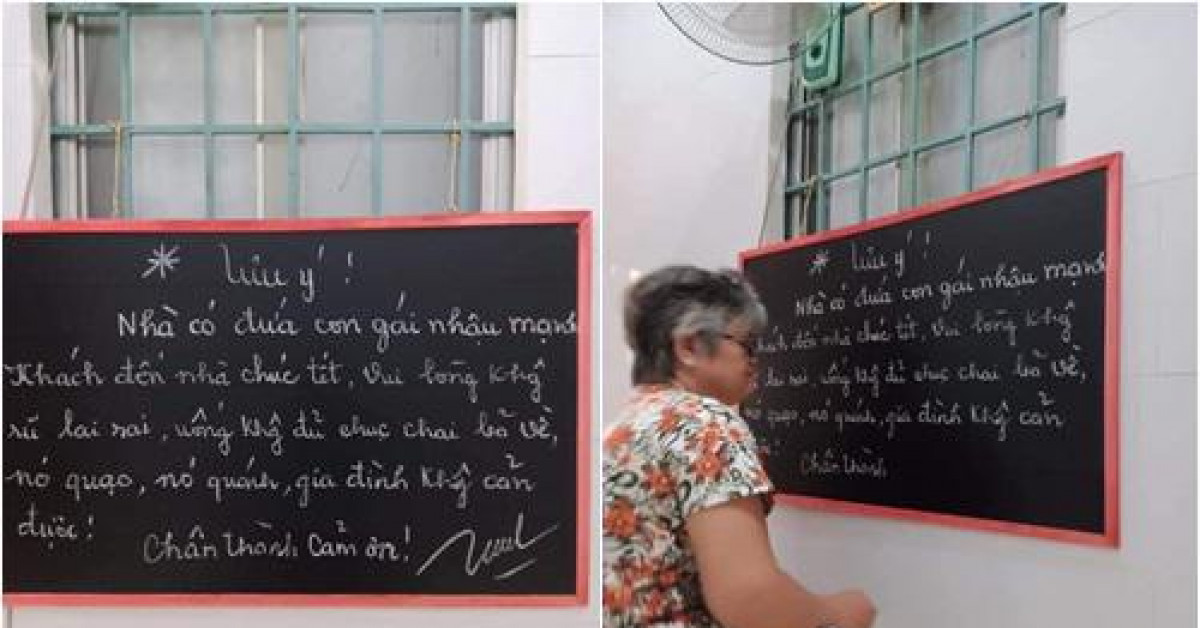 * Lưu ý !
Nhà có đứa con gái nhậu mạnh
Khách đến nhà chúc tết, vui lòng khg
rủ lai rai, uống khg đủ chục chai bỏ về,
nó quạo, nó quánh, gia đình khg cản
được!
Chân thành cảm ơn!
* Lưu ý !
Nhà có đứa con gái nhậu mạnh
khách đến nhà chúc tết, vui lòng khg
lai rai, uống khg đủ chục chai bỏ về,
nó quạo, nó quánh, gia đình khg cản
Chân thành